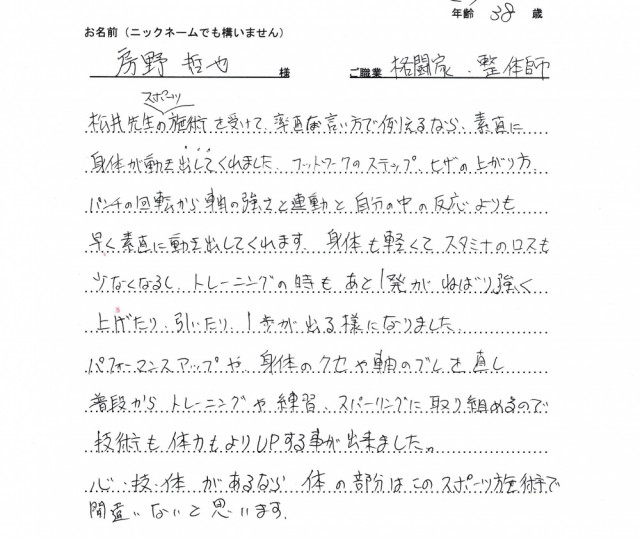 年齢 38 歳
お名前（ニックネームでも構いません）
房野 哲也 様 ご職業 格闘家、整体師
スポーツ
松井先生の施術を受けて、率直な言い方で例えるなら、素直に
身体が動き出してくれました。フットワークのステップ、ヒザの上がり方、
パンチの回転から軸の強さと連動と自分の中の反応よりも
早く素直に動き出してくれます。身体も軽くて、スタミナのロスも
少なくなるし、トレーニングの時も、あと1発が、ねばり強く
上げたり、引いたり、1歩が出る様になりました。
パフォーマンスアップや、身体のクセや軸のブレを直し
普段からトレーニングや練習、スパーリングに取り組めるので
技術も体力もよりUPする事が出来ました。
心・技・体があるなら、体の部分はこのスポーツ施術で
間違いないと思います。